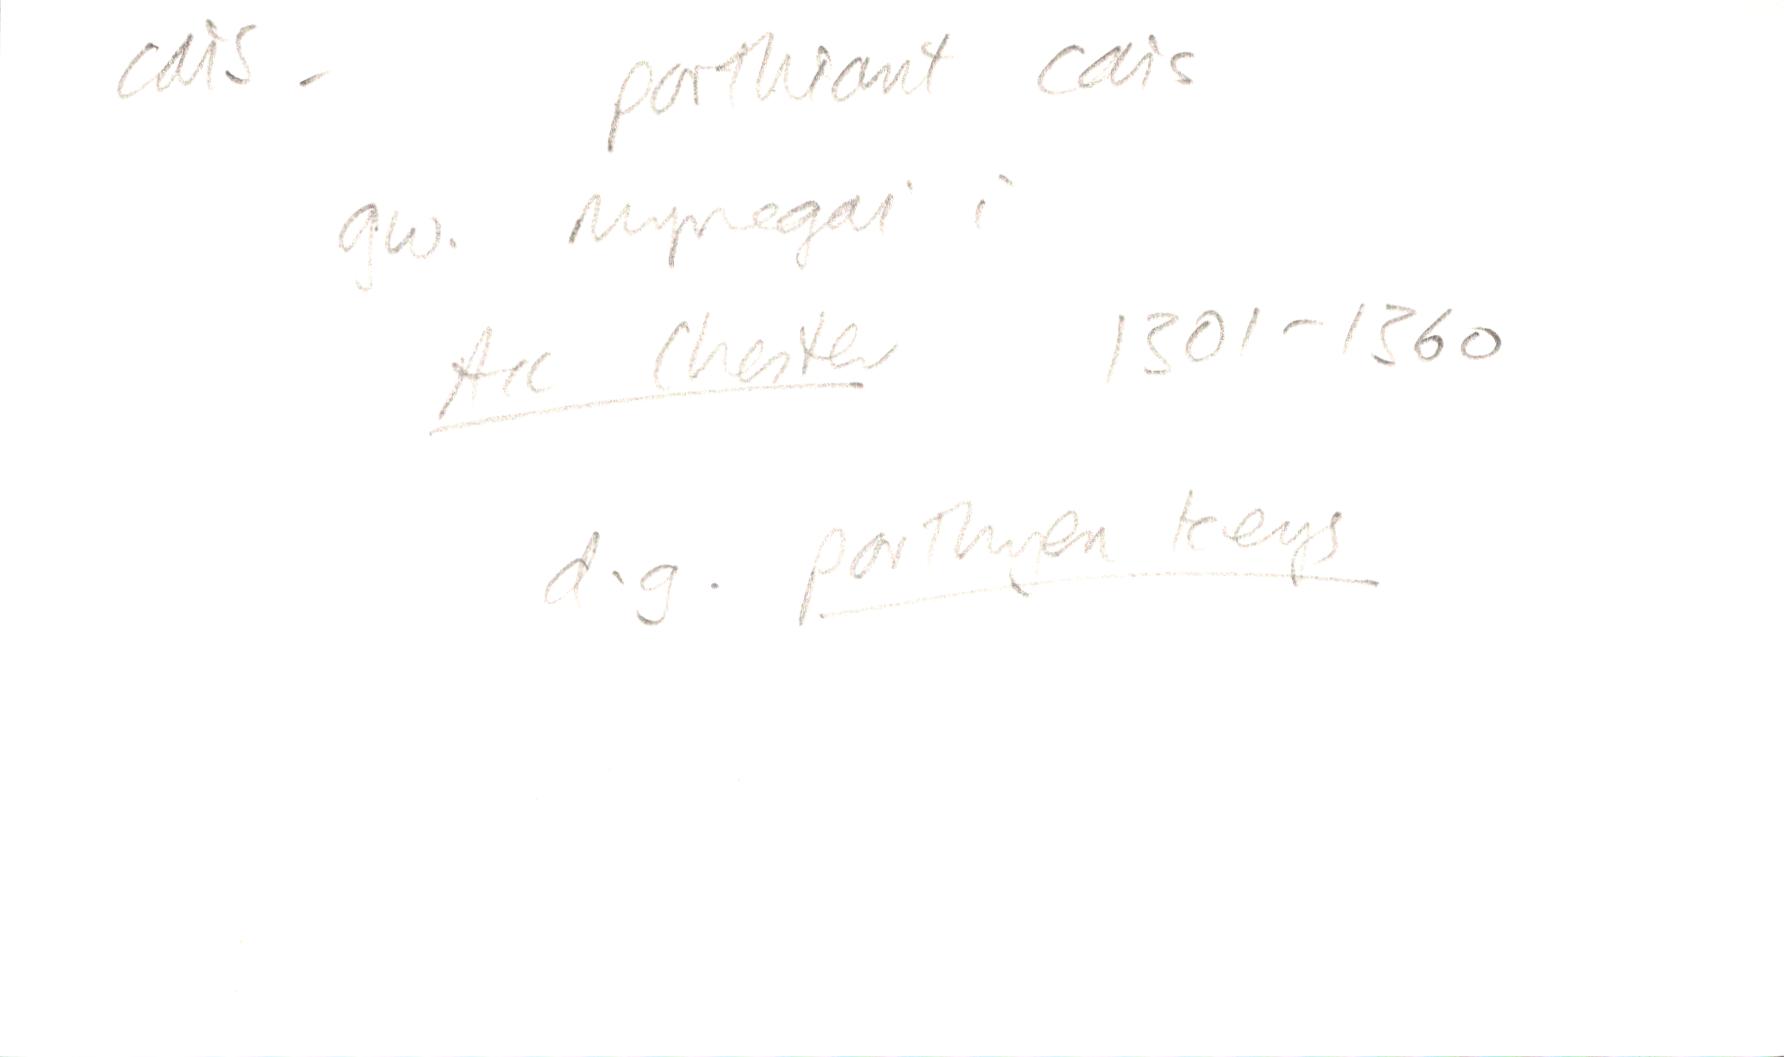 cais - porthiant cais
gw. mynegai i
Acc Chester 1301-1360
d.g. porthyen keys